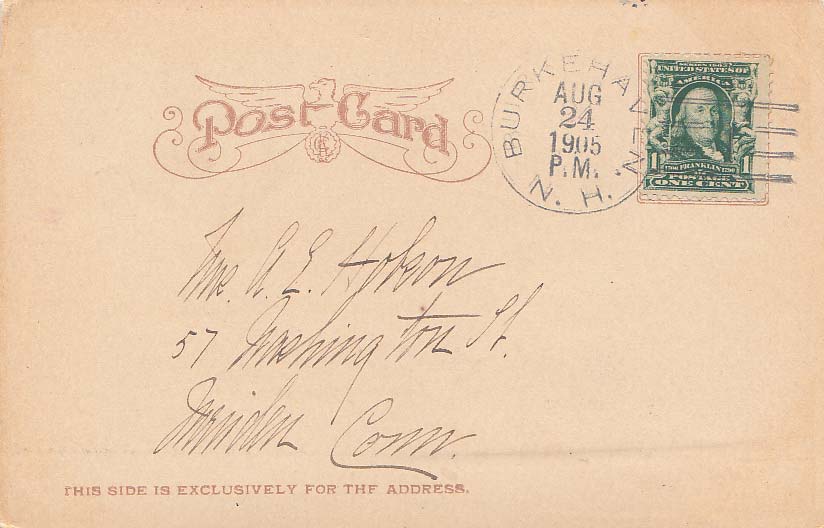 Post Card
BURKEHAVEN.
N. H.
AUG
24
1905
P.M.
SERIES 1902
UNITED STATES OF
AMERICA
1 1
FRANKLIN
POSTAGE
ONE CENT
Mrs. A. E. Hobson
57 Washington St.
Meriden Conn.
THIS SIDE IS EXCLUSIVELY FOR THE ADDRESS.